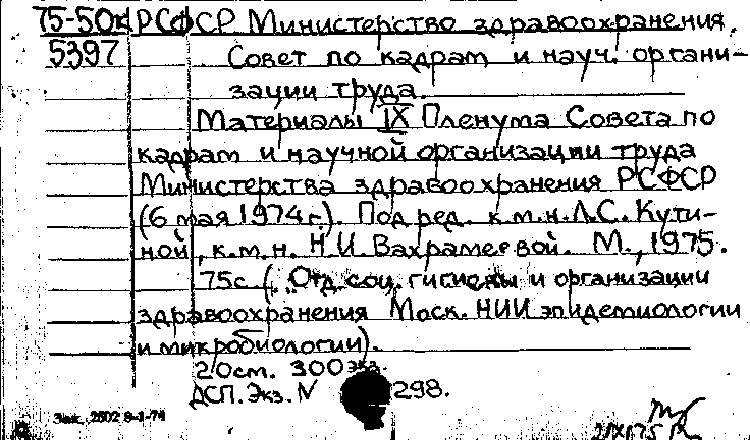 75-50к РСФСР Министерство здравоохранения.
5397 Совет по кадрам и науч. органи-
зации труда.
Материалы IX Пленума Совета по
кадрам и научной организации труда
Министерства здравоохранения РСФСР
(6 мая 1974 г.). Под ред. к.м.н. Л.С. Кути-
ной, к.м.н. Н.И. Вахрамеевой. М., 1975.
75с. (. Отд. соц. гигиены и организации
здравоохранения Моск. НИИ эпидемиологии
и микробиологии).
20см. 300 экз.
ДСП. Экз. N 298.
Зак. 2502 8-1-74